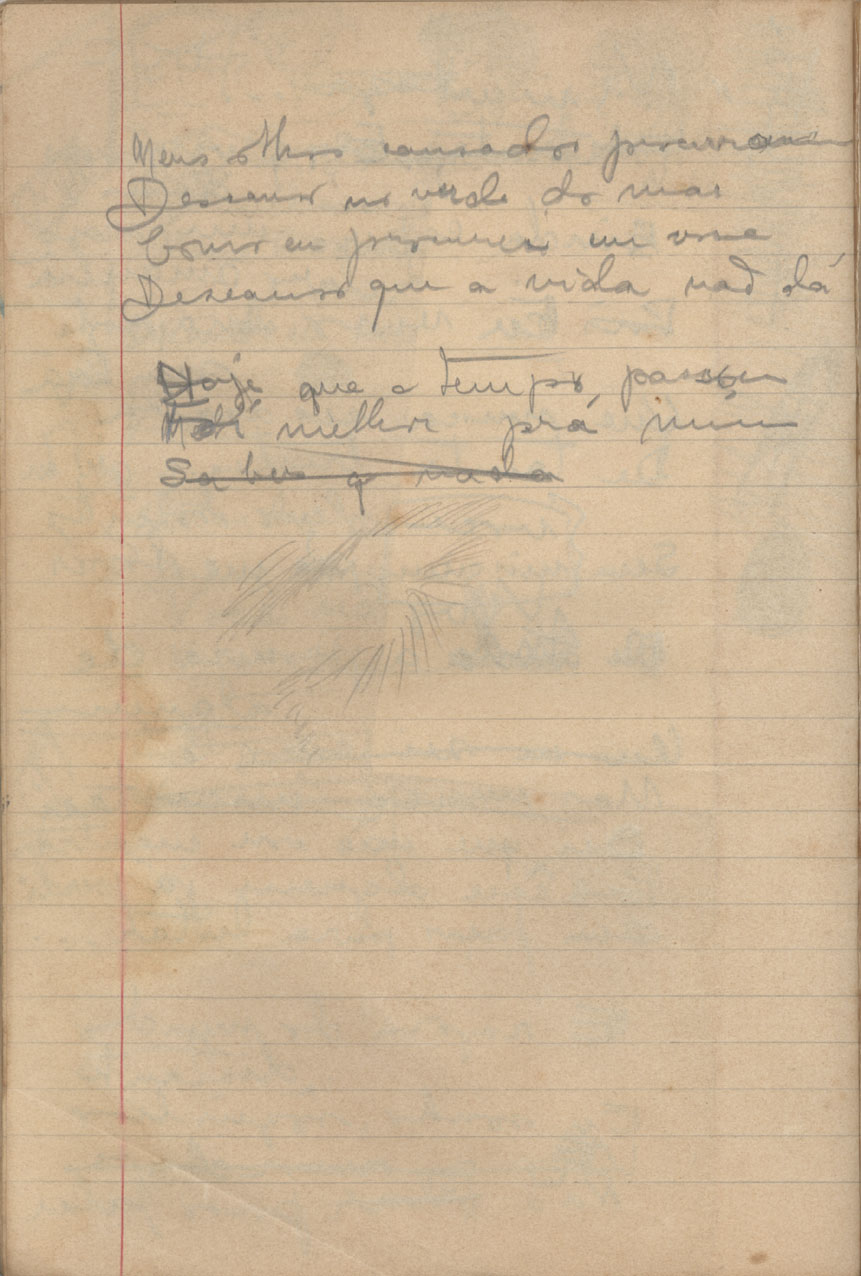 Meus olhos cansados procuram
Descanso no verde do mar
Como eu procurei em você
Descanso que a vida não dá
Hoje que o tempo, passou
melhor prá mim
Saber q nada